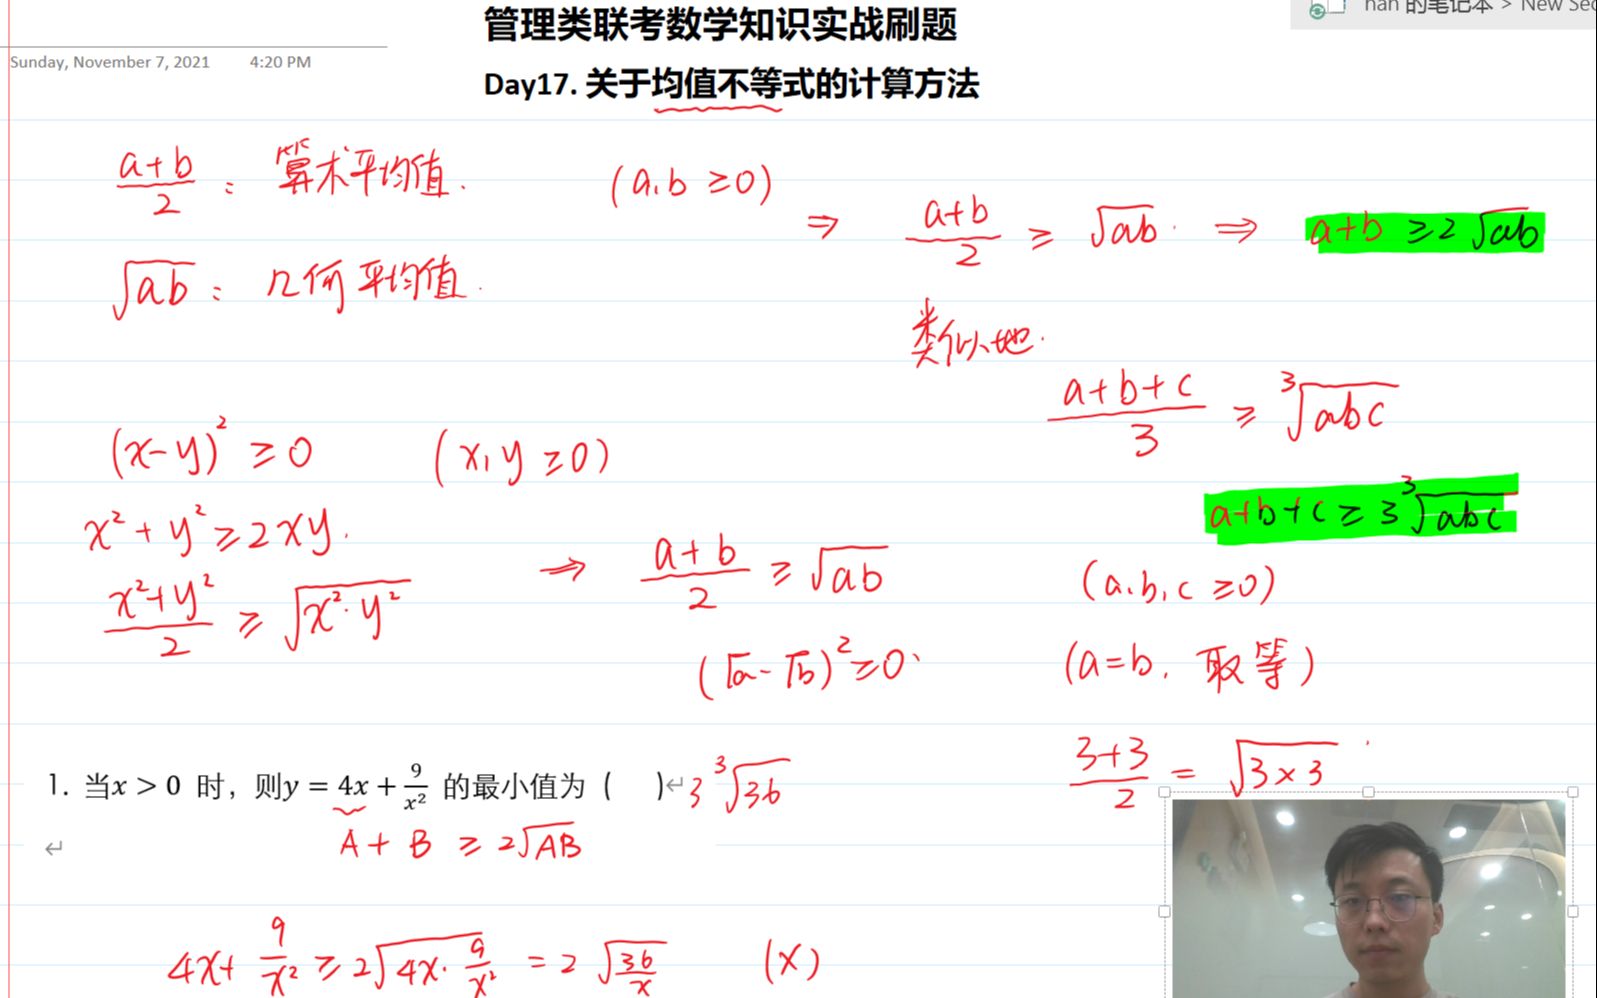 管理类联考数学知识实战刷题
nan 的笔记本 > New Sec
Sunday, November 7, 2021 4:20 PM
Day17. 关于均值不等式的计算方法
a+b/2 : 算术平均值. (a,b ≥0)
⇒ a+b/2 ≥ √ab. ⇒ a+b ≥2√ab
√ab : 几何平均值.
类似地.
a+b+c/3 ≥ ³√abc
(x-y)² ≥0 (x,y ≥0)
a+b+c ≥ 3³√abc
x²+y² ≥2xy.
x²+y²/2 ≥ √x²·y² ⇒ a+b/2 ≥ √ab
(a,b,c ≥0)
(√a-√b)² ≥0、 (a=b, 取等)
3+3/2 = √3×3
1. 当x > 0 时，则y = 4x + 9/x² 的最小值为 ( )↵ 3³√36
↵
A + B ≥ 2√AB
4x+ 9/x² ≥ 2√4x·9/x² = 2√36/x (×)